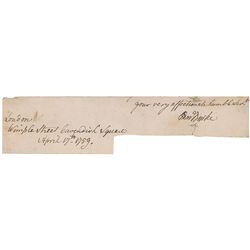 your very affectionate humble Servt
Edm Burke
London
Wimple Street Cavendish Square
April 17th 1759.